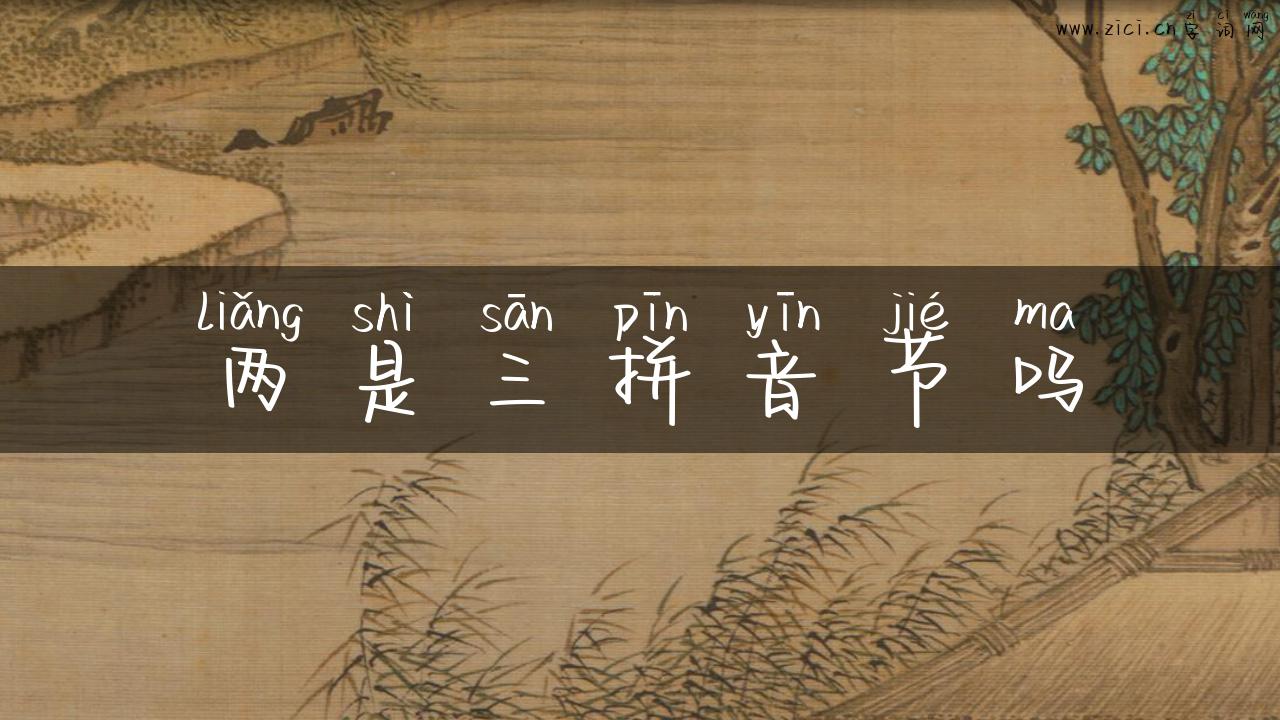 zì cí wǎng
www.zici.cn字词网
liǎng shì sān pīn yīn jié ma
两是三拼音节吗